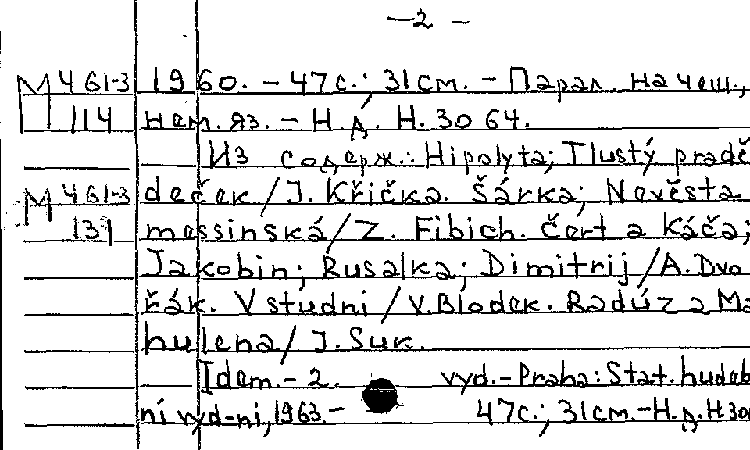 —2 —
М 461-3 1960. – 47с.; 31см. – Парал. на чеш.,
114 нем. яз. – Н.Д. Н. 3064.
Из содерж.: Hipolyta; Tlustý pradě
М 461-3 deček / J. Křička. Šárka; Nevěsta
131 messinská / Z. Fibich. Čert a Káča;
Jakobin; Rusalka; Dimitrij / A. Dvo
řák. V studni / V. Blodek. Radúz a Ma
hulena / J. Suk.
Idem. – 2. vyd. – Praha: Stat. hudeb
ní vyd-ní, 1963. – 47с.; 31см. – Н.Д. Н 30